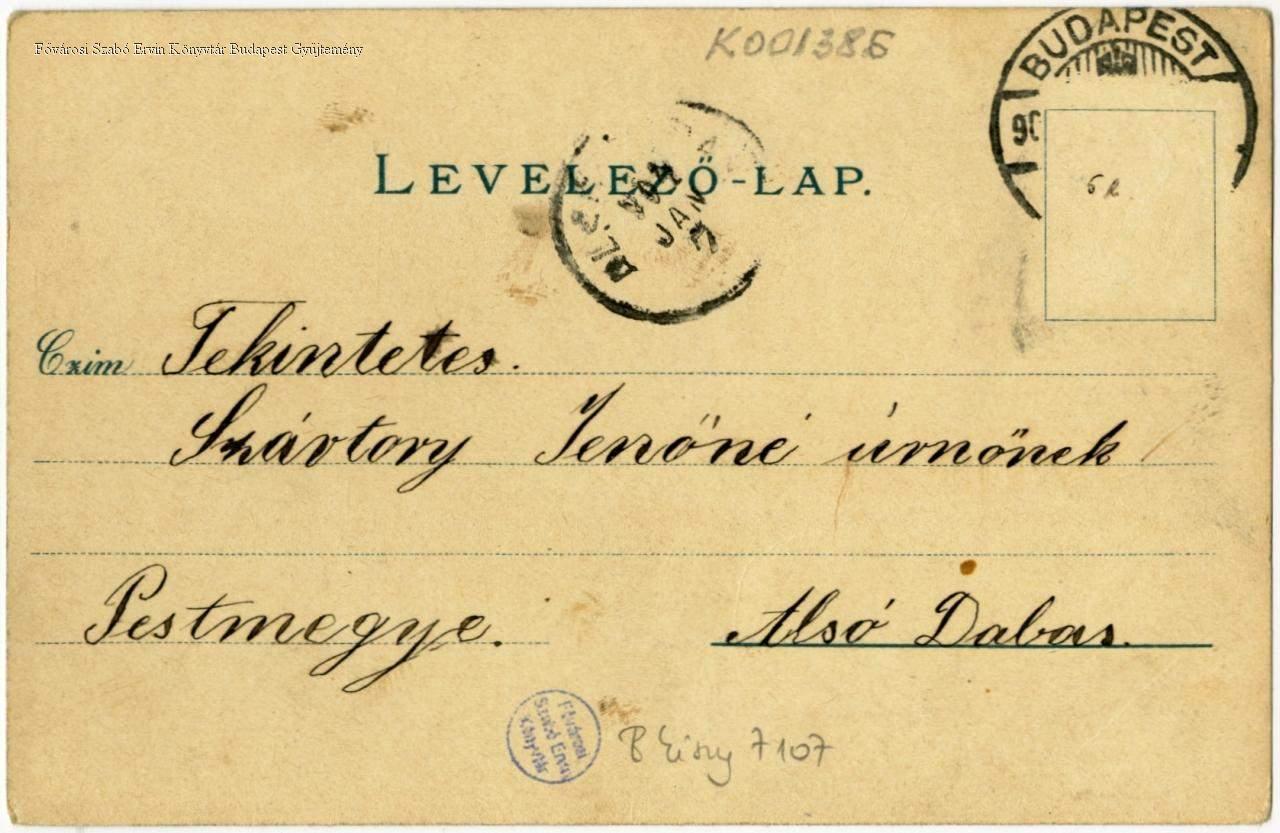 Fővárosi Szabó Ervin Könyvtár Budapest Gyűjtemény
K001386
BUDAPEST
90
LEVELEZŐ-LAP.
904
JAN
6
Czim Tekintetes.
Szávtory Jenőné úrnőnek
Pestmegye. Alsó Dabas.
Fővárosi
Szabó Ervin
Könyvtár
7107